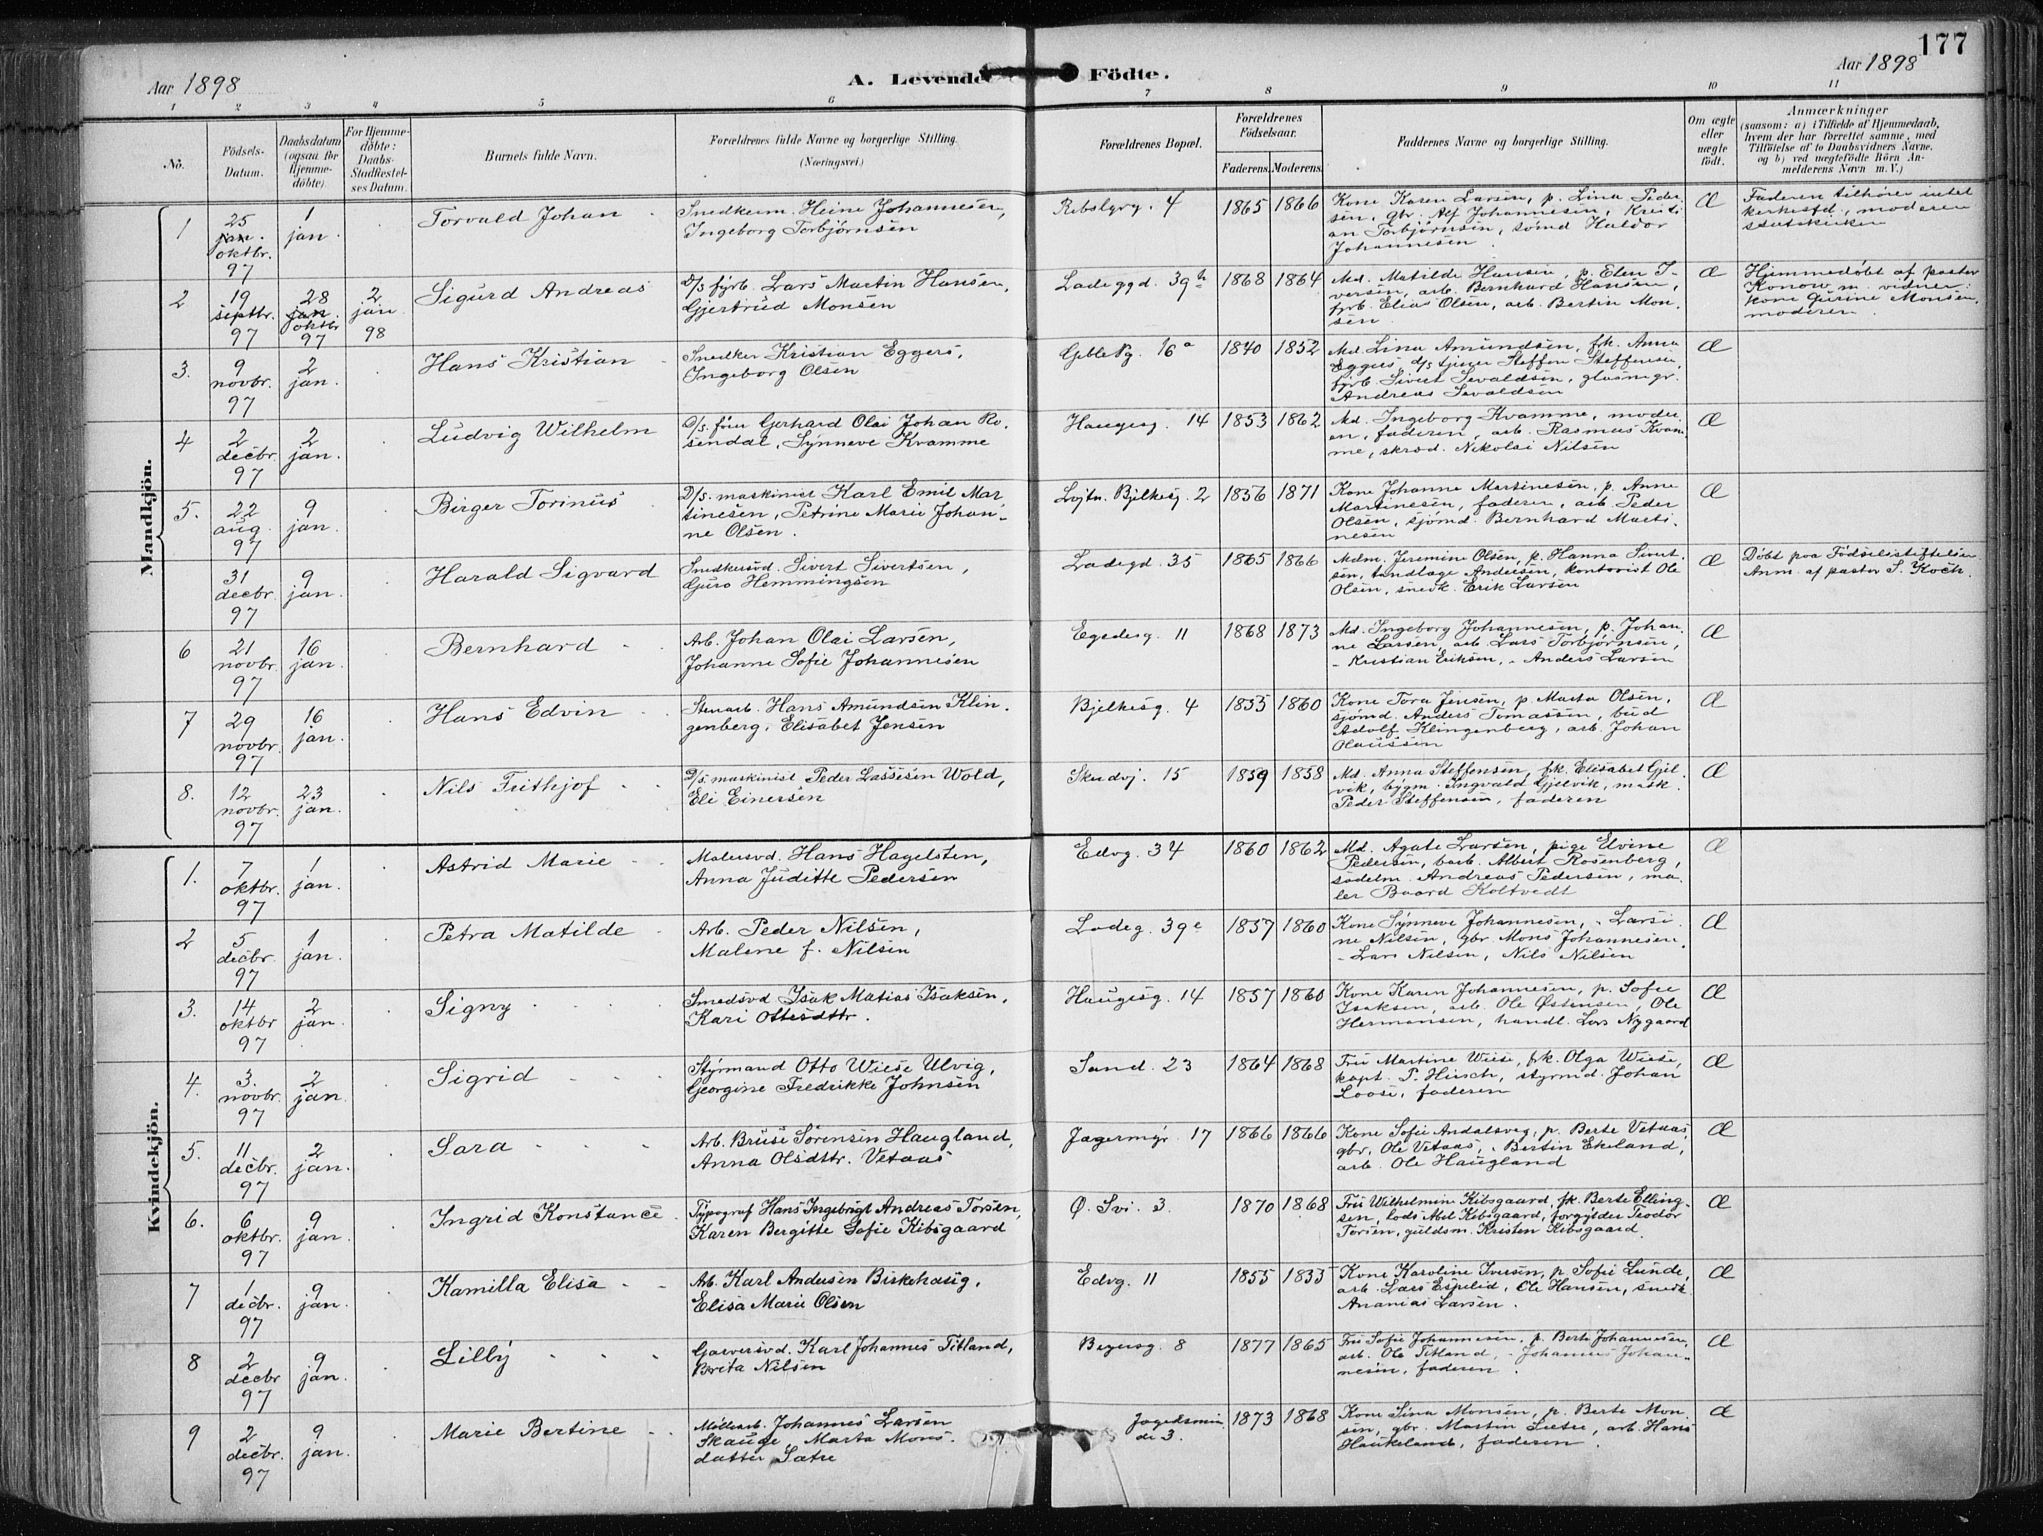 177
Aar 1898
A. Levende Födte.
Aar 1898
1 2 3 4 5 6 7 8 9 10 11
No.
Födsels-Datum.
Daabsdatum (ogsaa for Hjemme-döbte)
For Hjemme-döbte: Daabs-Stadfæstel-ses Datum.
Barnets fulde Navn.
Forældrenes fulde Navne og borgerlige Stilling. (Næringsvei.)
Forældrenes Bopæl.
Forældrenes Födselsaar.
Faderens. Moderens.
Faddernes Navne og borgerlige Stilling.
Om ægte eller uægte födt.
Anmærkninger
(saasom: a) i Tilfælde af Hjemmedaab,
hvem der har forrettet samme, med
Tilföielse af to Daabsvidners Navne.
og b) ved uægtefödte Börn An-
melderens Navn m. V.)
Mandkjön.
1
25 jan. oktbr. 97
1 jan.
Torvald Johan
Snedkerm. Heine Johannesen,
Ingeborg Torbjørnsen
4
1865 1866
Kone Karen Larsen, p. Lina Peder-
sen, gbr. Alf Johannesen, Kristi
an Torbjørnsen, sømd Haldor
Johannesen
Æ
Faderen tilhører intet
kirkesfd., moderen
statskirken
2
19 septbr. 97
28 jan. oktbr 97
2 jan 98
Sigurd Andreas
D/s fyrb. Lars Martin Hansen,
Gjertrud Monsen
Ladeggd. 39 b
1868 1864
Md. Matilde Hansen, p. Elen I-
versen, arb. Bernhard Hansen,
fyrb. Elias Olsen, arb. Bertin Mon-
sen
Æ
Hjemmedøbt af pastor
Konow m. vidner:
kone Gurine Monsen,
moderen
3.
9 novbr. 97
2 jan.
Hans Kristian
Snedker Kristian Eggers,
Ingeborg Olsen
16 a
1840 1852
Md. Lina Amundsen, frk. Anna
Eggers, d/s Steffen Steffensen,
fyrb. Sivert Sevaldsen,
Andreas Sevaldsen
Æ
4
2 decbr. 97
2 jan.
Ludvig Wilhelm
D/s. fører Gerhard Olai Johan Ro-
sendal, Synneve Kvamme
Haugesg. 14
1853 1862
Md. Ingeborg Kvamme, moder
en, faderen, arb. Rasmus Kvam
me, skræd. Nikolai Nilsen
Æ
5.
22 aug. 97
9 jan.
Birger Torinus
D/s. maskinist Karl Emil Mar
tinesen, Petrine Marie Johan-
ne Olsen.
Løjtn. Bjelkesg. 2
1856 1871
Kone Johanne Martinesen, p. Anne
Martinesen, faderen, arb. Peder
Olsen, sjømd. Bernhard Marti-
nesen
Æ
31 decbr. 97
9 jan.
Harald Sigvard
Snedkersvd. Sivert Sivertsen,
Guro Hemmingsen
Ladegd. 35
1865 1866
Mdm. Jeremine Olsen, p. Hanna Sivert-
sen, tandlæge Andersen, kontorist Ole
Olsen, snedk. Erik Larsen
Æ
Døbt paa Fødselsstiftelsen
Anm. af pastor S. Koch.
6
21 novbr. 97
16 jan.
Bernhard
Arb. Johan Olai Larsen,
Johanne Sofie Johannesen
Egedesg. 11
1868 1873
Md. Ingeborg Johannesen, p. Johan-
ne Larsen, arb. Lars Torbjørnsen,
- Kristian Eriksen, - Anders Larsen
Æ
7
29 novbr. 97
16 jan.
Hans Edvin
Stenarb. Hans Amundsen Klin-
genberg, Elisabet Jensen
Bjelkesg. 4
1855 1860
Kone Tora Jensen, p Marta Olsen,
sjømd. Anders Tomassen, bud
Adolf Klingenberg, arb. Johan
Olaussen
Æ
8.
12 novbr. 97
23 jan.
Nils Frithjof
D/s. maskinist Peder Lassesen Wold,
Eli Einersen
Skudvj. 15
1859 1858
Md. Anna Steffensen, frk. Elisabet Gjel-
vik, bygm. Ingvald Gjelvik, mask.
Peder Steffensen, faderen
Æ
Kvindekjön.
1.
7 oktbr. 97
1 jan.
Astrid Marie
Malersvd. Hans Hagelsten,
Anna Juditte Pedersen
Edvg. 34
1860 1862
Md. Agate Larsen, pige Elvine
Pedersen, barb. Albert Rosenberg,
sadelm. Andreas Pedersen, ma-
ler Baard Koltvedt
Æ
2
5 decbr. 97
1 jan.
Petra Matilde
Arb. Peder Nilsen,
Malene f. Nilsen
Ladeg. 39 e
1857 1860
Kone Synneve Johannesen, - Larsi-
ne Nilsen, gbr Mons Johannesen,
- Lars Nilsen, Nils Nilsen
Æ
3.
14 oktbr 97
2 jan.
Signy
Smedsvd Isak Matias Isaksen,
Kari Ottesdttr.
Haugesg. 14
1857 1860
Kone Karen Johannesen, p. Sofie
Isaksen, arb. Ole Østensen, Ole
Hermansen, handl. Lars Nygaard
Æ
4.
3. novbr. 97
2 jan.
Sigrid
Styrmand Otto Wiese Ulvig,
Georgine Fredrikke Johnsen
Sand. 23
1864 1868
Fru Martine Wiese, frk. Olga Wiese,
kapt. P. Hinsch, styrmd. Johan
Loose, faderen
Æ
5.
11 decbr. 97
2 jan.
Sara
Arb. Bruse Sørensen Haugland,
Anna Olsdttr. Vetaas
Jægermyr. 17
1866 1866
Kone Sofie Andalsvåg, p. Berte Vetaas,
gbr. Ole Vetaas, - Bertin Ekeland,
arb. Ole Haugland
Æ
6.
6 oktbr. 97
9 jan.
Ingrid Konstance
Typograf Hans Ingebrigt Andreas Torsen,
Karen Bergitte Sofie Kibsgaard
Ø. Svi. 3.
1870 1868
Fru Wilhelmine Kibsgaard, frk. Berte Elling-
sen, lods Abel Kibsgaard, forgylder Teodor
Torsen, guldsm. Kristen Kibsgaard.
Æ
7
1 decbr. 97
9 jan.
Kamilla Elisa
Arb. Karl Andersen Birkehaug,
Elisa Marie Olsen
Edvg. 11
1855 1855
Kone Karoline Iversen, p. Sofie Lunde,
arb. Lars Espelid, Ole Hansen, snedk
Ananias Larsen.
Æ
8
2 decbr 97
9 jan.
Lilly
Garversvd. Karl Johannes Titland,
Brita Nilsen
8
1877 1865
Fru Sofie Johannesen, p. Berte Johannesen,
arb. Ole Titland, - Johannes Johan-
nesen, faderen.
Æ
9
2 decbr. 97
9 jan.
Marie Bertine
Møllearb. Johannes Larsen
Skauge, Marta Mons-
datter Sætre
de 3.
1873 1868
Kone Sina Monsen, p. Berte Mon
sen, gbr. Martin Sætre, arb. Hans
Haukeland, faderen.
Æ